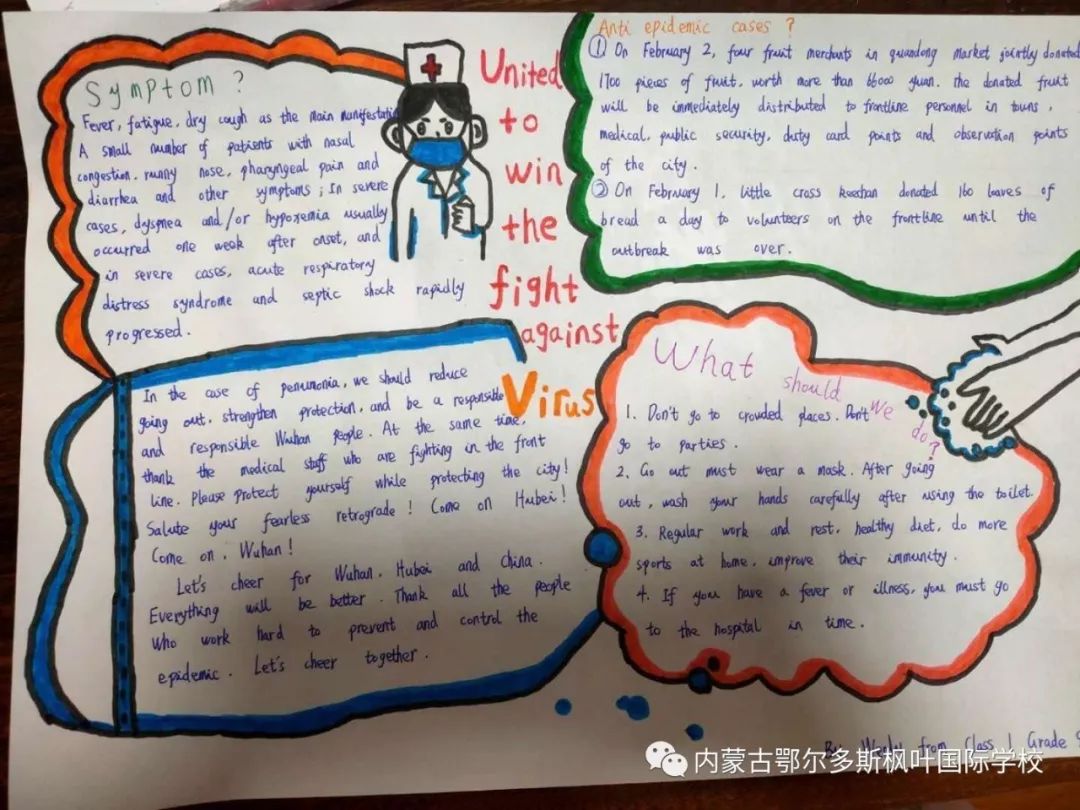 Symptom ?
Fever, fatigue, dry cough as the main manifestation
A small number of patients with nasal
congestion, runny nose, pharyngeal pain and
diarrhea and other symptoms; In severe
cases, dyspnea and/or hypoxemia usually
occurred one week after onset, and
in severe cases, acute respiratory
distress syndrome and septic shock rapidly
progressed.
United
to
win
the
fight
against
Virus
Anti epidemic cases ?
① On February 2, four fruit merchants in quandong market jointly donated
1700 pieces of fruit, worth more than 66000 yuan. the donated fruit
will be immediately distributed to frontline personnel in towns,
medical, public security, duty card points and observation points
of the city.
② On February 1, little cross donated 160 loaves of
bread a day to volunteers on the frontline until the
outbreak was over.
In the case of penumonia, we should reduce
going out, strengthen protection, and be a responsible
and responsible Wuhan people. At the same time,
thank the medical staff who are fighting in the front
line. Please protect yourself while protecting the city!
Salute your fearless retrograde! Come on Hubei!
Come on, Wuhan!
Let's cheer for Wuhan, Hubei and China.
Everything will be better. Thank all the people
Who work hard to prevent and control the
epidemic. Let's cheer together.
What should we do?
1. Don't go to crowded places. Don't
go to parties.
2. Go out must wear a mask. After going
out, wash your hands carefully after using the toilet.
3. Regular work and rest, healthy diet, do more
sports at home, improve their immunity.
4. If you have a fever or illness, you must go
to the hospital in time.
from Class 1 Grade
内蒙古鄂尔多斯枫叶国际学校